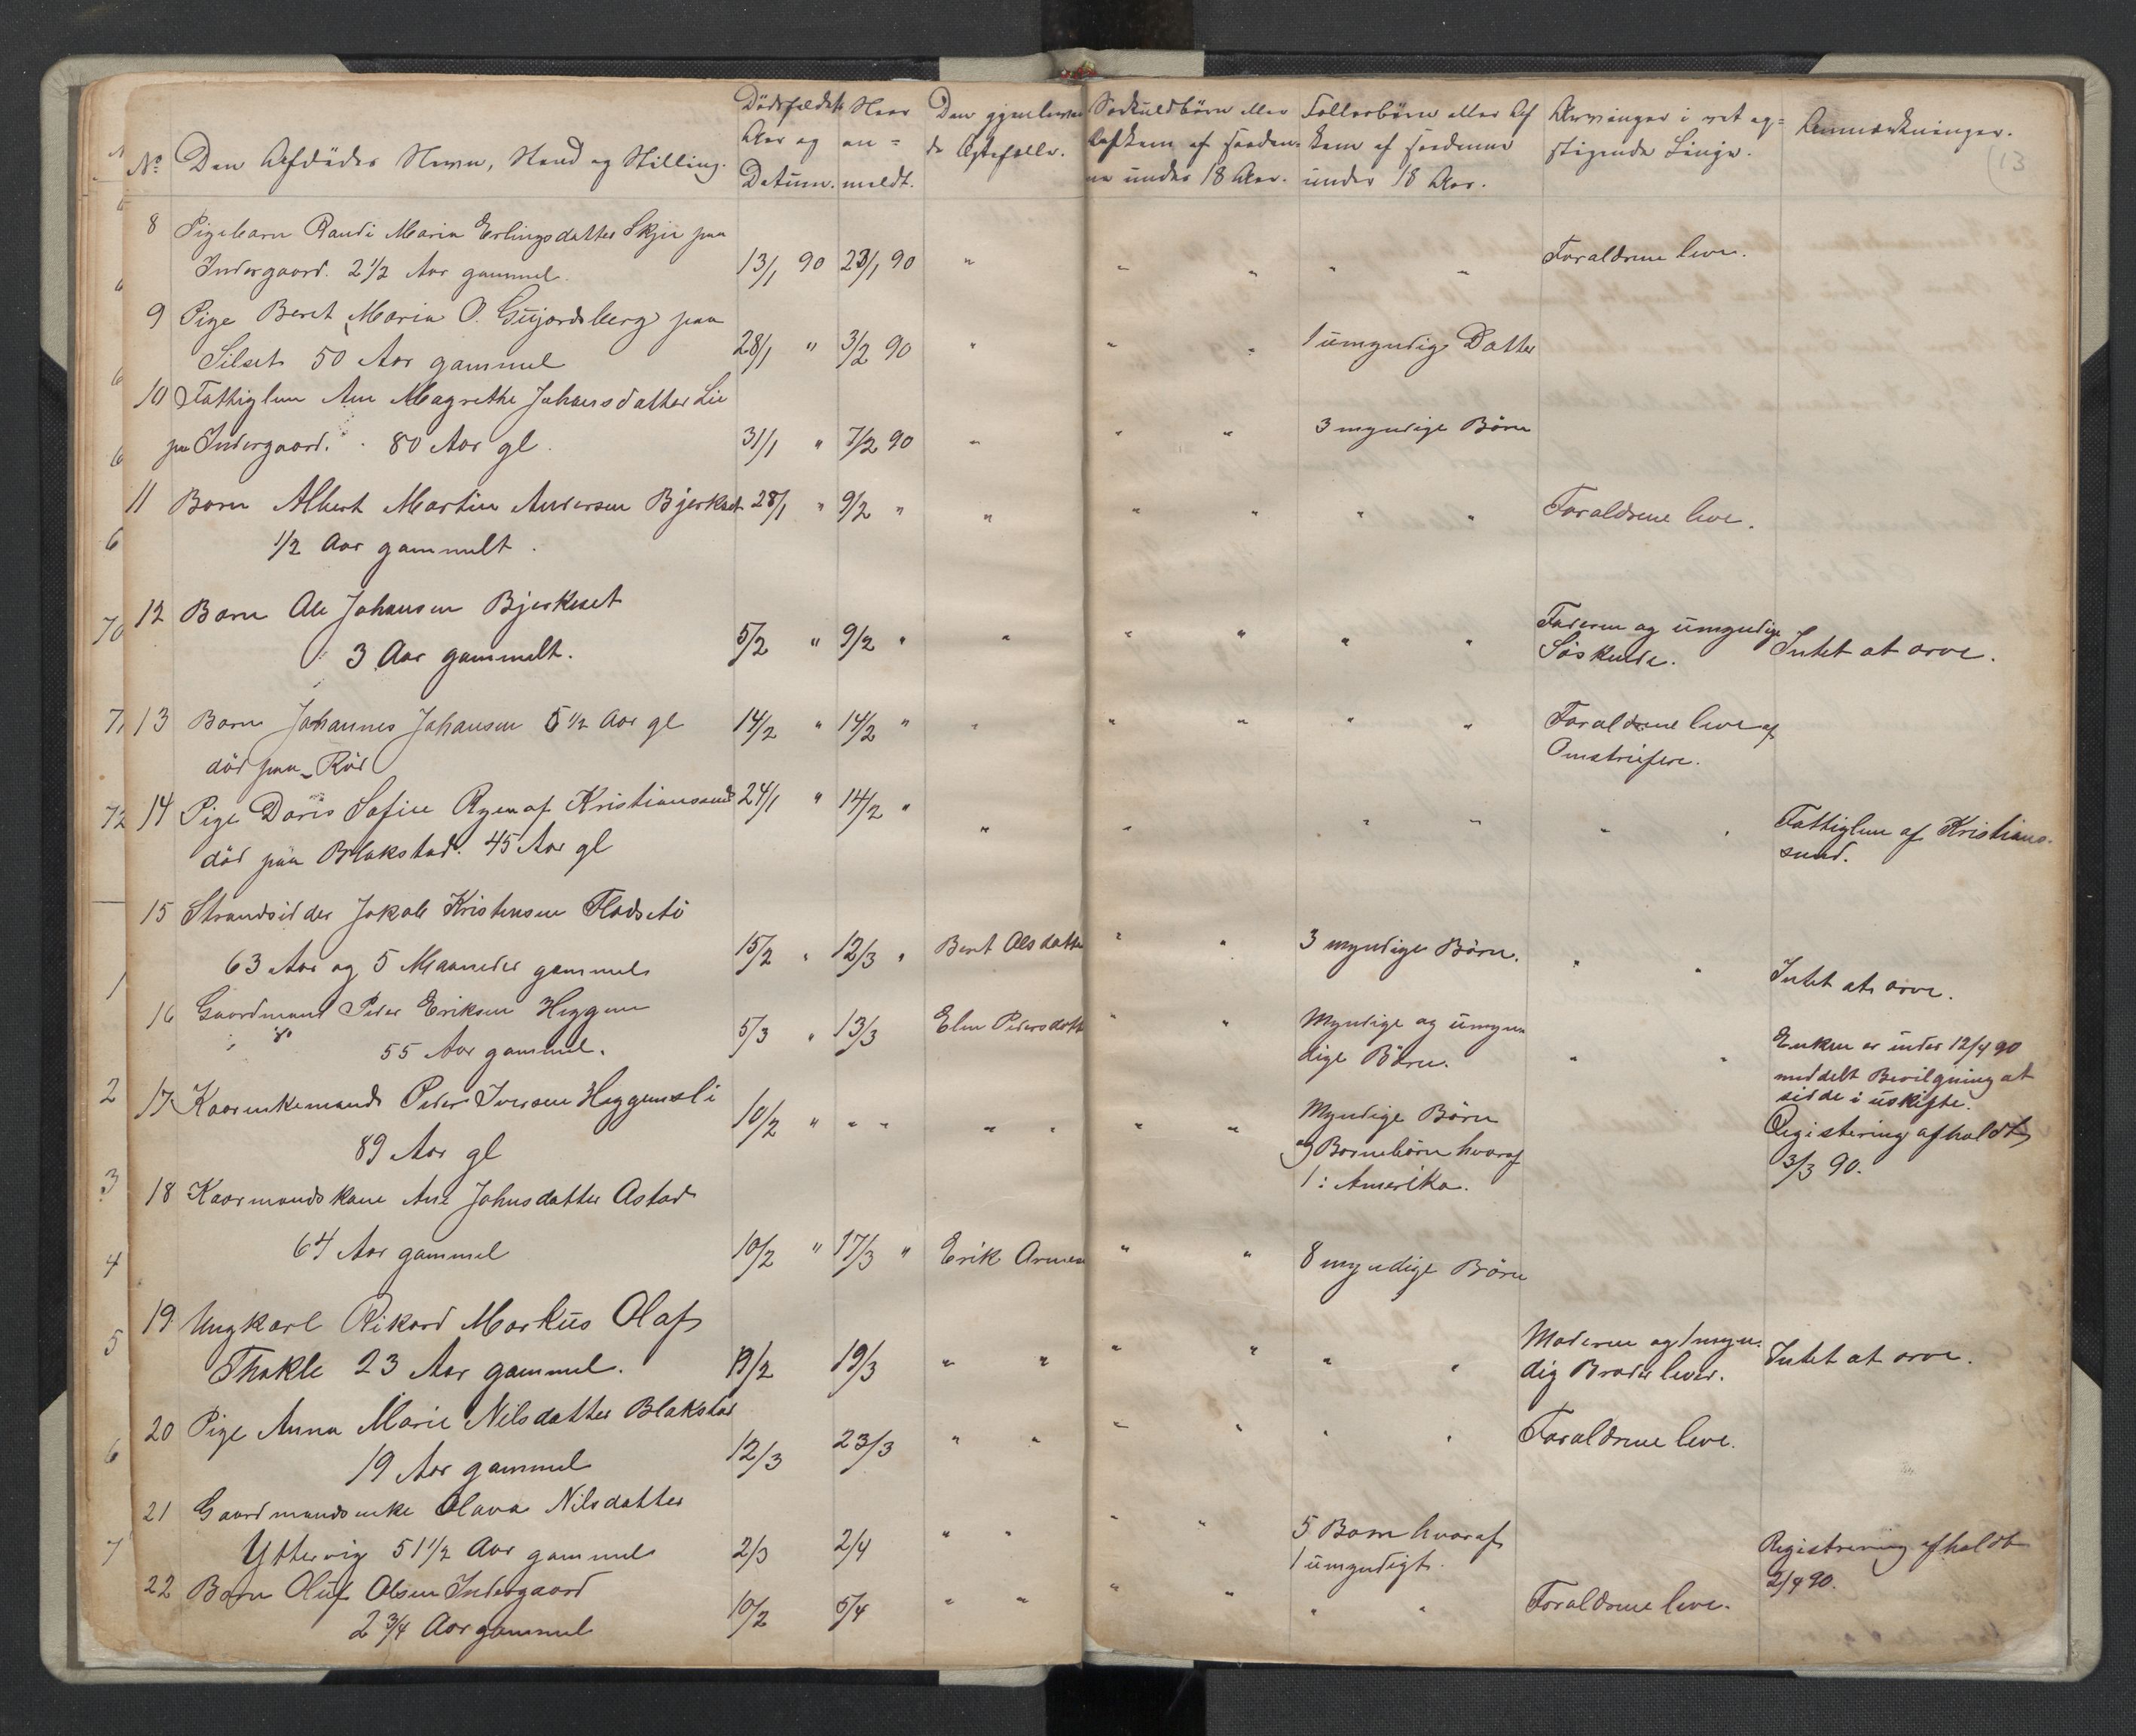 13
No Den Afdødes Navn, Stand og Stilling. Dødsfaldets Aar og Datum. Naar an= meldt. Den gjenlevende Ægtefælle. Særkuldbørn eller Afkom af saadan= ne under 18 Aar. Fællesbørn eller Af kom af saadanne under 18 Aar. Arvinger i ret op= stigende Linje. Anmærkninger.
8 Pigebarn Randi Maria Erlingsdatter Skjei paa
Indergaard. 2 1/2 Aar gammel. 13/1 90 23/1 90 " " " " " Forældrene leve.
9 Pige Beret Maria O. Gujordsberg paa
Silset 50 Aar gammel 28/1 " 3/2 90 " " " 1 umyndig Datter
10 Fattiglem Ane Magrethe Johansdatter Lie
paa Indergaard. 80 Aar gl. 31/1 " 7/2 90 " " " 3 myndige Børn
11 Barn Albert Martin Andersen Bjerkset 28/1 " 9/2 " " " " " " Forældrene leve.
1/2 Aar gammelt.
12 Barn Ole Johansen Bjerkeset
3 Aar gammelt. 5/2 " 9/2 " " " " " " Faderen og umyndige
Søskende. Intet at arve.
13 Barn Johannes Johansen 5 1/2 Aar gl 14/2 " 14/2 " " " " " " Forældrene leve af
død paa Rød Omstreifere.
14 Pige Doris Sofie Ryen af Kristianssund 24/1 " 14/2 "
død paa Blakstad. 45 Aar gl " " " " " " Fattiglem af Kristians-
sund.
15 Strandsidder Jakob Kristensen Flodsetø
63 Aar og 5 Maaneder gammel 15/2 " 12/3 " Berit Olsdatter " " 3 myndige Børn. " " Intet at arve.
16 Gaardmand Peder Eriksen Heggem
55 Aar gammel. 5/3 " 13/3 Elen Pedersdatt " " Myndige og umyn
dige Børn. " " Enken er under 12/4 90
meddelt Bevilgning at
sidde i uskifte.
17 Kaarenkemand Peder Iversen Heggemsli
89 Aar gl 10/2 " " " " " " " Myndige Børn
og Børnebørn hvoraf
1 i Amerika. Registering afholdt
3/3 90.
18 Kaarmandskone Ane Johnsdatter Astad
64 Aar gammel 10/2 " 17/3 " Erik Arnesen " " 8 myndige Børn
19 Ungkarl Rikard Markus Olafs
Thokle 23 Aar gammel. 19/2 19/3 " " " " " " Moderen og 1 myn-
dig Broder lever. Intet at arve.
20 Pige Anna Marie Nilsdatter Blakstad
19 Aar gammel 12/3 23/3 " " " " " " Forældrene leve.
21 Gaardmandsenke Olava Nilsdatter
Yttervig 51 1/2 Aar gammel 2/3 2/4 " " " " 5 Børn hvoraf
1 umyndigt. Registrering afholdt
2/4 90.
22 Barn Oluf Olsen Indergaard
2 3/4 Aar gammel 10/2 5/4 " " " " " " Forældrene leve.